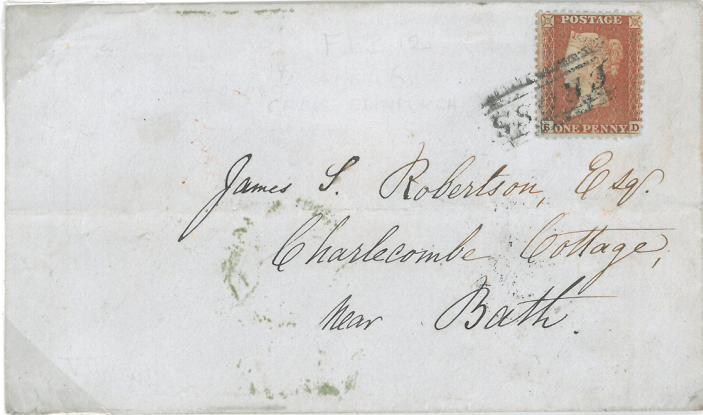 POSTAGE
B D
ONE PENNY
James S. Robertson, Esqr.
Charlecombe Cottage,
near Bath.